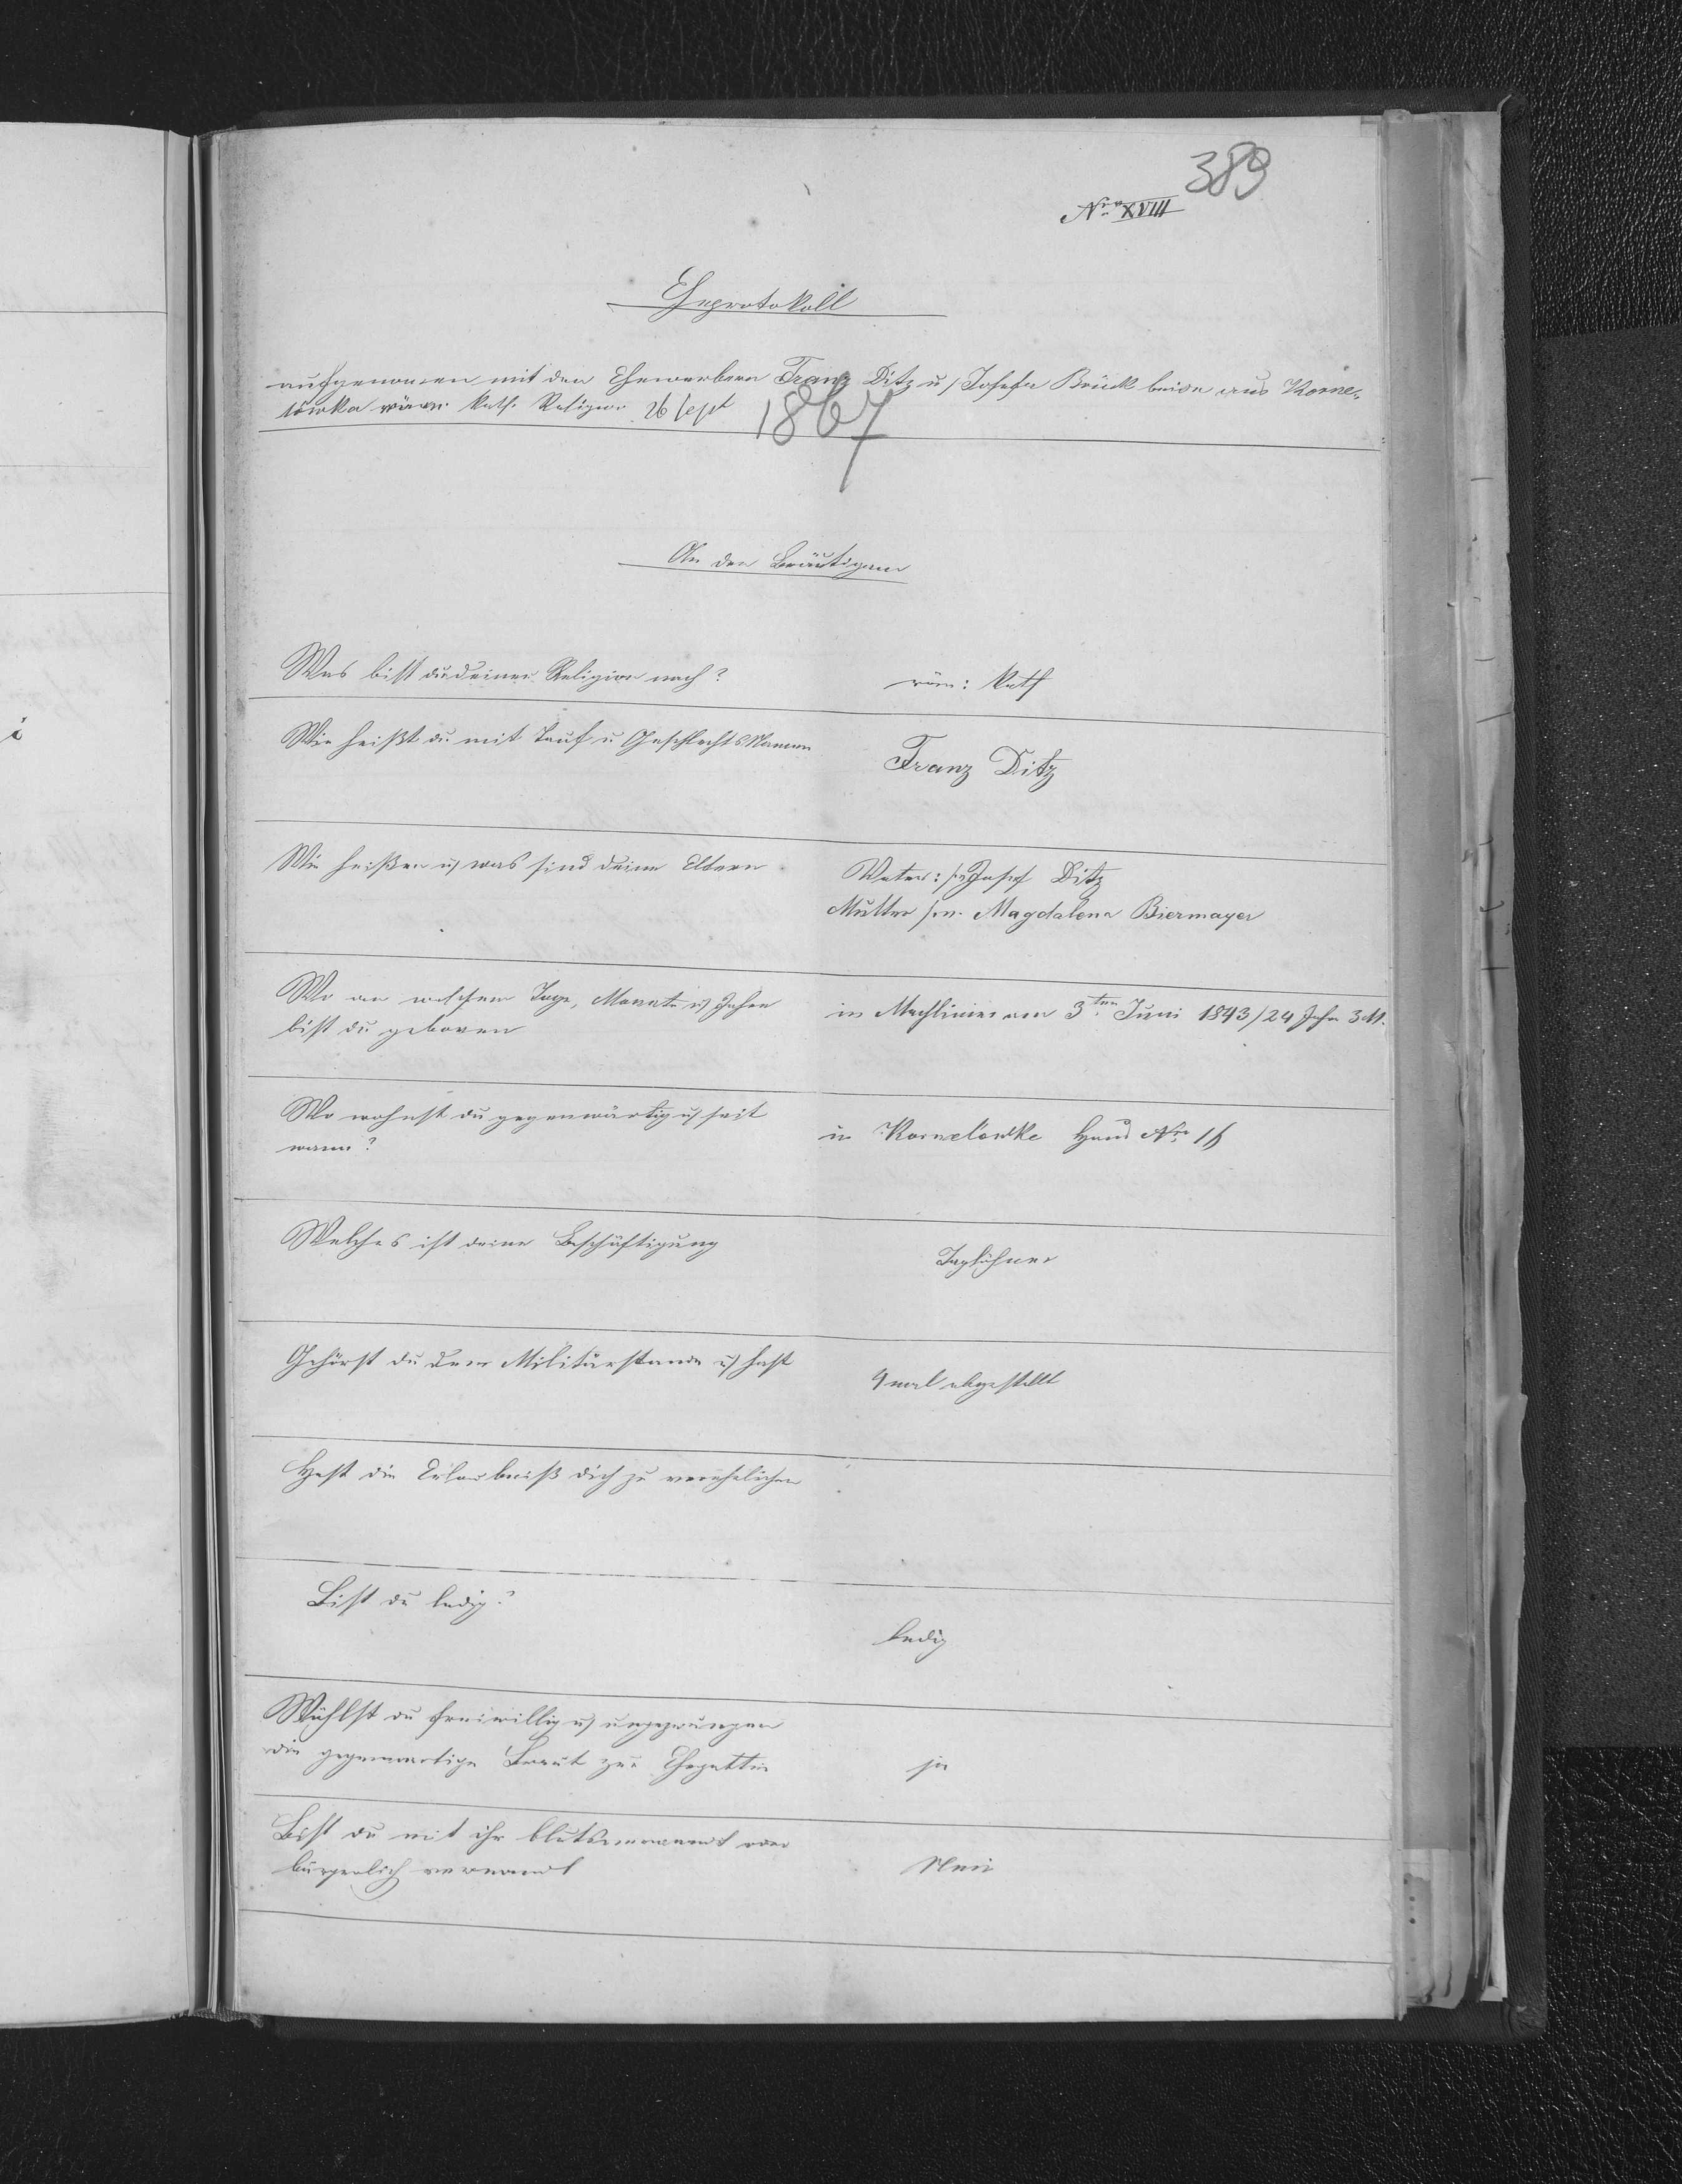 389
Nro XVIII
Eheprotokoll
aufgenomen mit den Ehewerbern Franz Ditz u Josefa Brück beide aus Korne-
lówka röm. kath. Religion 26 Sept
1867
An den Bräutigam
Was bist du deiner Religion nach?
röm: kath
Wie heißt du mit Tauf u Geschlechts Namen
Franz Ditz
Wie heißen u was sind deine Eltern
Vater: Josef Ditz
Mutter Magdalena Biermayer
Wo an welchem Tage, Monate u Jahre
bist du geboren
in am 3ten Juni 1843/24 Jahr 3 M.
Wo wohnst du gegenwärtig u seit
wann?
in Kornelówka Haus Nro
Welches ist deine Beschäftigung
Taglöhner
Gehörst du dem Militärstande u hast
4 mal abgestellt
Hast die Erlaubniß dich zu verehelichen
Bist du ledig?
ledig
Wählst du freiwillig u ungezwungen
die gegenwärtige Braut zur Ehegattin
ja
Bist du mit ihr blutsverwandt oder
bürgerlich verwandt
Nein